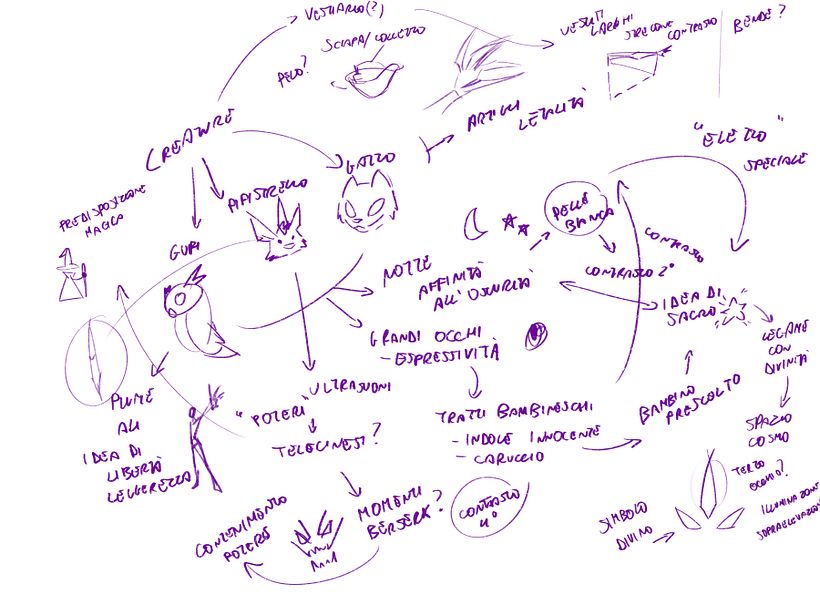 VESTIARIO(?)
VESTITI LARGHI
STREGONE
CONTRASTO
BENDE?
SCIARPA/COLLETTO
PELO?
ARTIGLI
LETALITÀ
CREATURE
GATTO
"ELETTO"
SPECIALE
PREDISPOSIZIONE
MAGICA
PIPISTRELLO
GUFI
PELLE
BIANCA
CONTRASTO
NOTTE
AFFINITÀ
ALL'OSCURITÀ
CONTRASTO 2°
IDEA DI
SACRO
GRANDI OCCHI
- ESPRESSIVITÀ
LEGAME
CON
DIVINITÀ
ULTRASUONI
PIUME
ALI
IDEA DI
LIBERTÀ
LEGGEREZZA
"POTERI"
TELECINESI?
TRATTI BAMBINESCHI
- INDOLE INNOCENTE
- CARUCCIO
BAMBINO
PRESCELTO
SPAZIO
COSMO
TERZO
OCCHIO?
ILLUMINAZIONE
SOPRAELEVAZIONE
MOMENTI
BERSERK?
CONTRASTO
SIMBOLO
DIVINO
CONTENIMENTO
POTERE